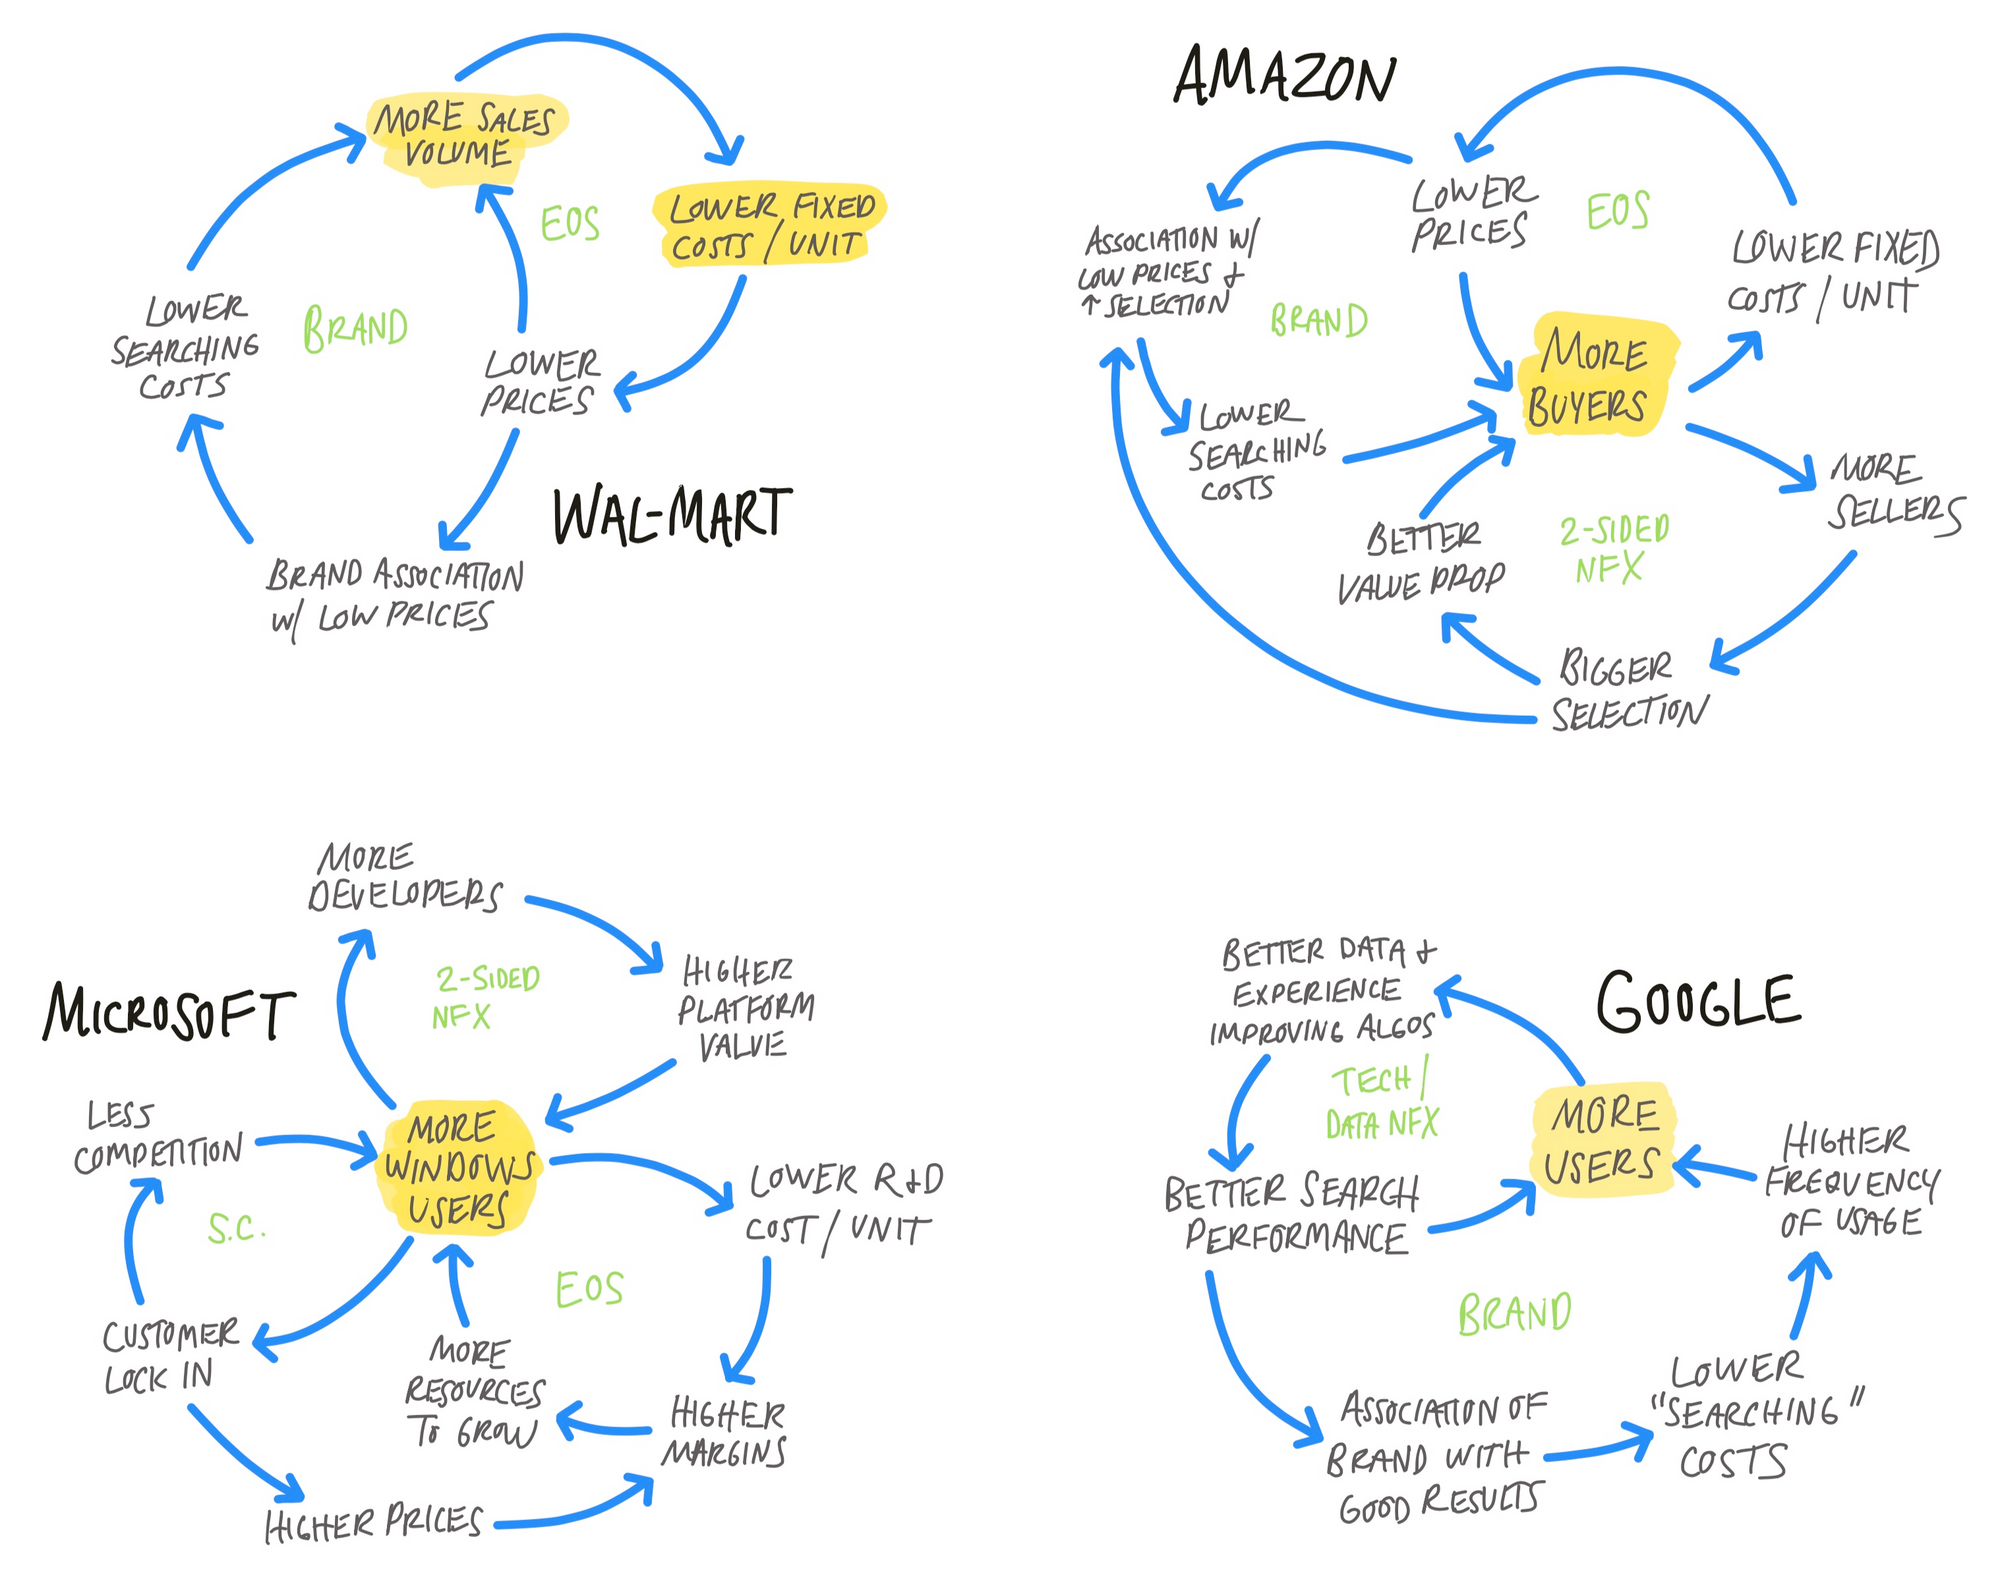 MORE SALES
VOLUME
EOS
LOWER FIXED
COSTS / UNIT
LOWER
SEARCHING
COSTS
BRAND
LOWER
PRICES
WAL-MART
BRAND ASSOCIATION
W/ LOW PRICES
AMAZON
LOWER
PRICES
EOS
ASSOCIATION W/
LOW PRICES +
↑ SELECTION
LOWER FIXED
COSTS / UNIT
BRAND
MORE
BUYERS
LOWER
SEARCHING
COSTS
MORE
SELLERS
BETTER
VALUE PROP
2-SIDED
NFX
BIGGER
SELECTION
MORE
DEVELOPERS
MICROSOFT
2-SIDED
NFX
HIGHER
PLATFORM
VALUE
LESS
COMPETITION
MORE
WINDOWS
USERS
LOWER R+D
COST / UNIT
S.C.
EOS
CUSTOMER
LOCK IN
MORE
RESOURCES
TO GROW
HIGHER
MARGINS
HIGHER PRICES
BETTER DATA +
EXPERIENCE
IMPROVING ALGOS
GOOGLE
TECH /
DATA NFX
MORE
USERS
HIGHER
FREQUENCY
OF USAGE
BETTER SEARCH
PERFORMANCE
BRAND
ASSOCIATION OF
BRAND WITH
GOOD RESULTS
LOWER
"SEARCHING"
COSTS